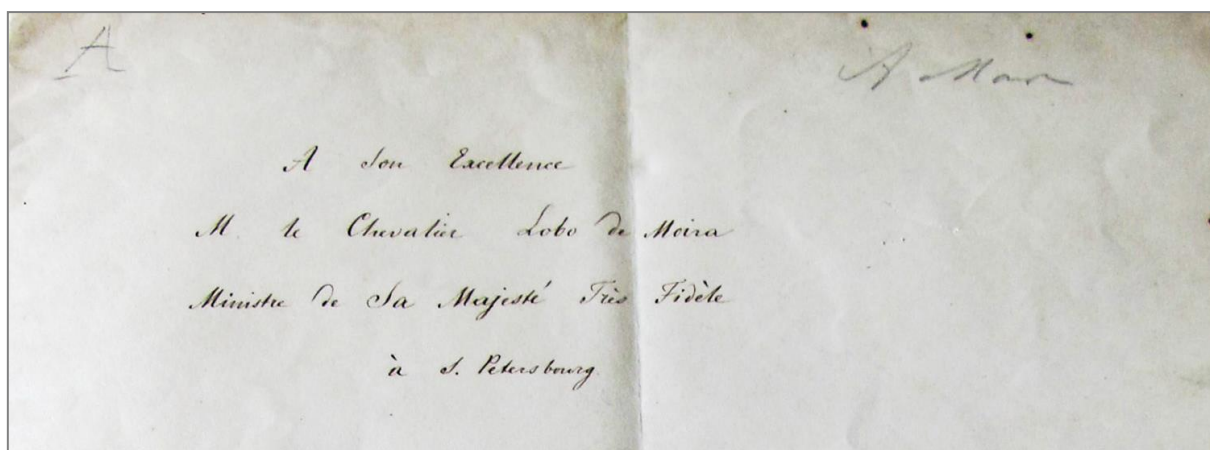 A
A
A Son Excellence
M. le Chevalier Lobo de Moira
Ministre de Sa Majesté Très Fidèle
à S. Petersbourg.